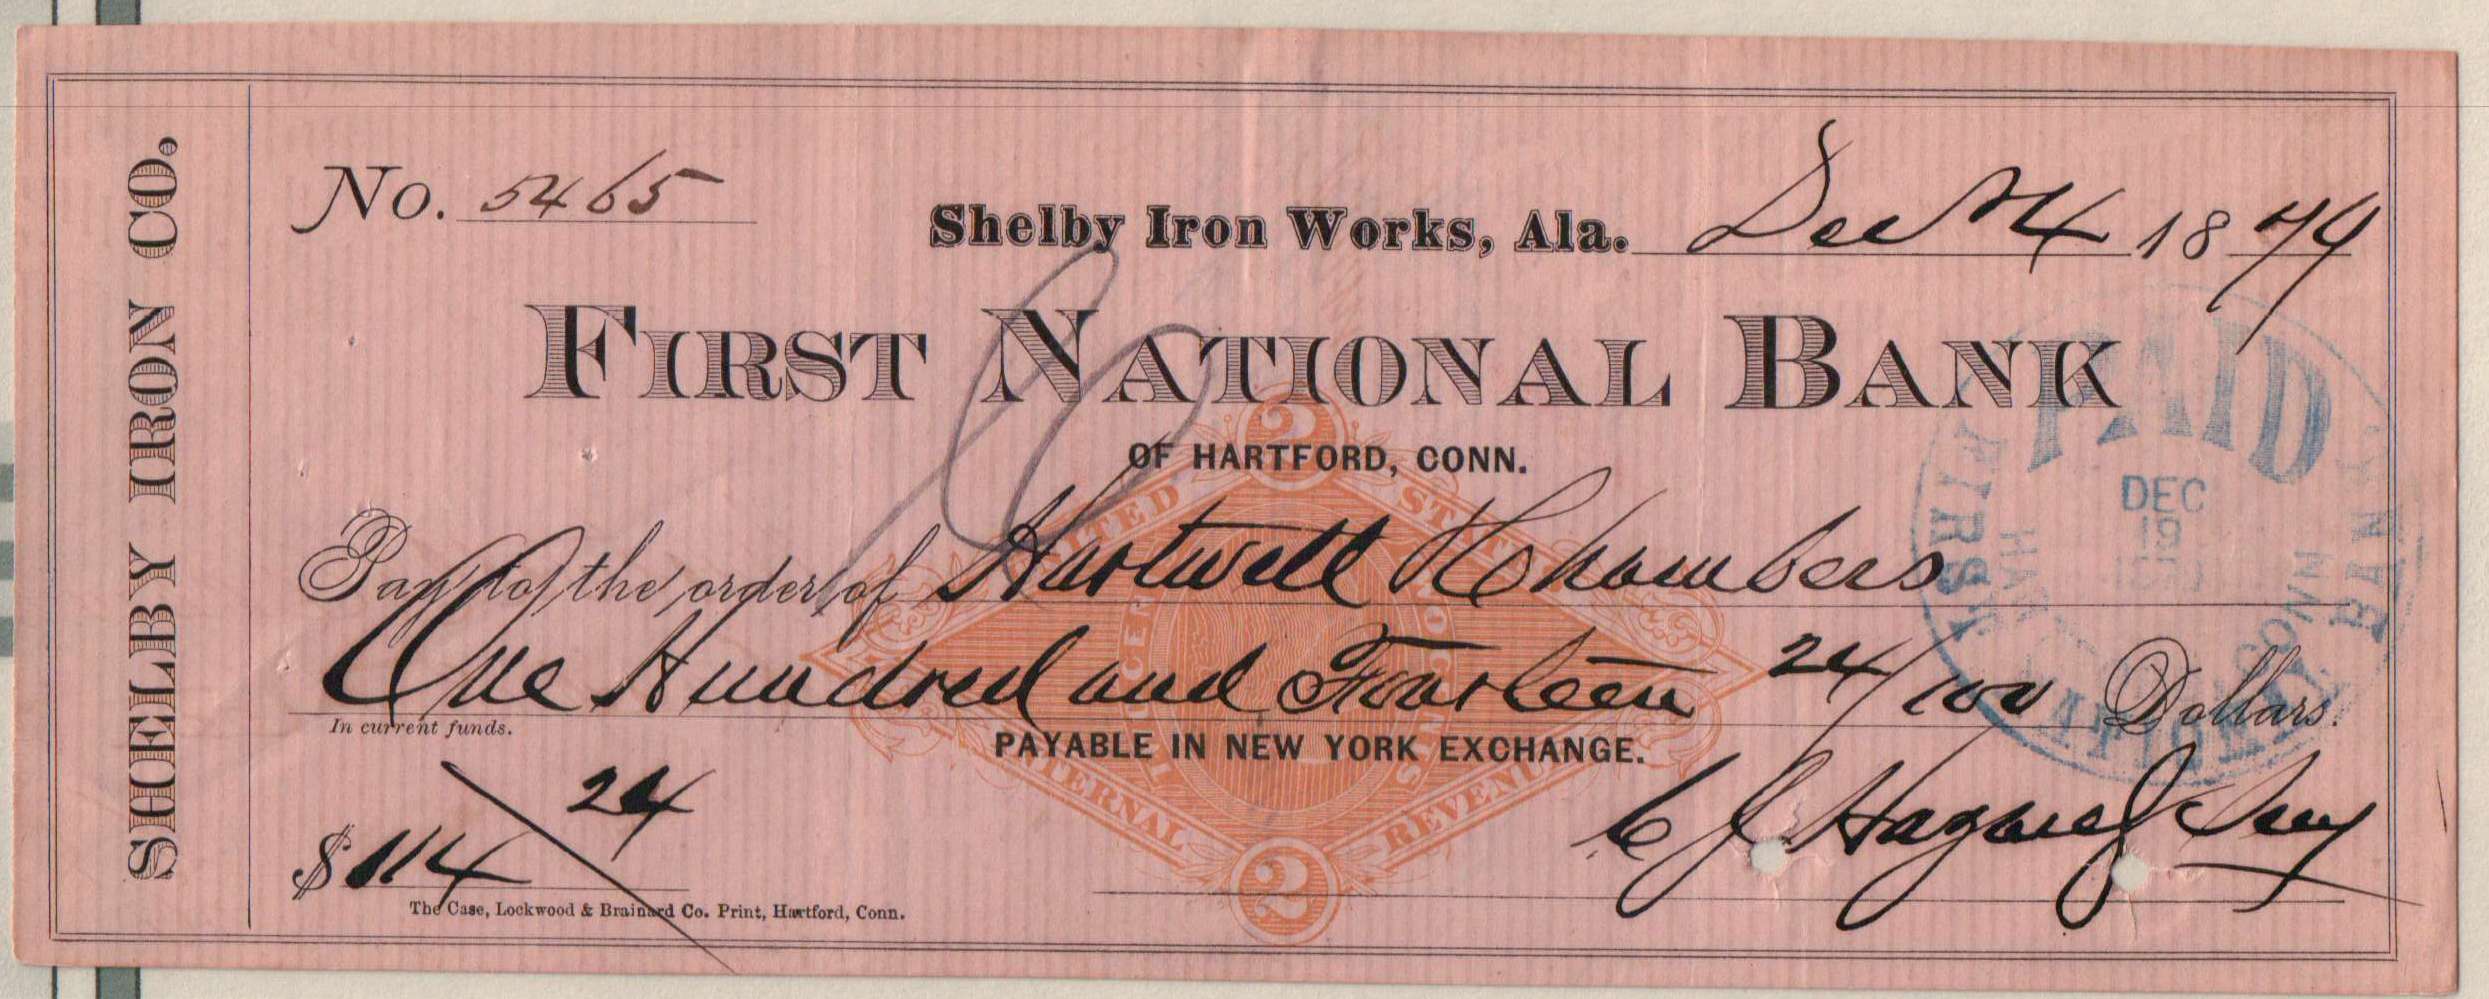 SHELBY IRON CO.
No. 5465
Shelby Iron Works, Ala. Dec 14 1879
FIRST NATIONAL BANK
OF HARTFORD, CONN.
Pay to the order of Hartwell & Chambers
One Hundred and Fourteen 24/100 Dollars.
In current funds.
PAYABLE IN NEW YORK EXCHANGE.
$114 24
The Case, Lockwood & Brainard Co. Print, Hartford, Conn.
UNITED STATES
INTERNAL REVENUE
2
2
PAID
DEC
19
FIRST NATIONAL BANK
CONN